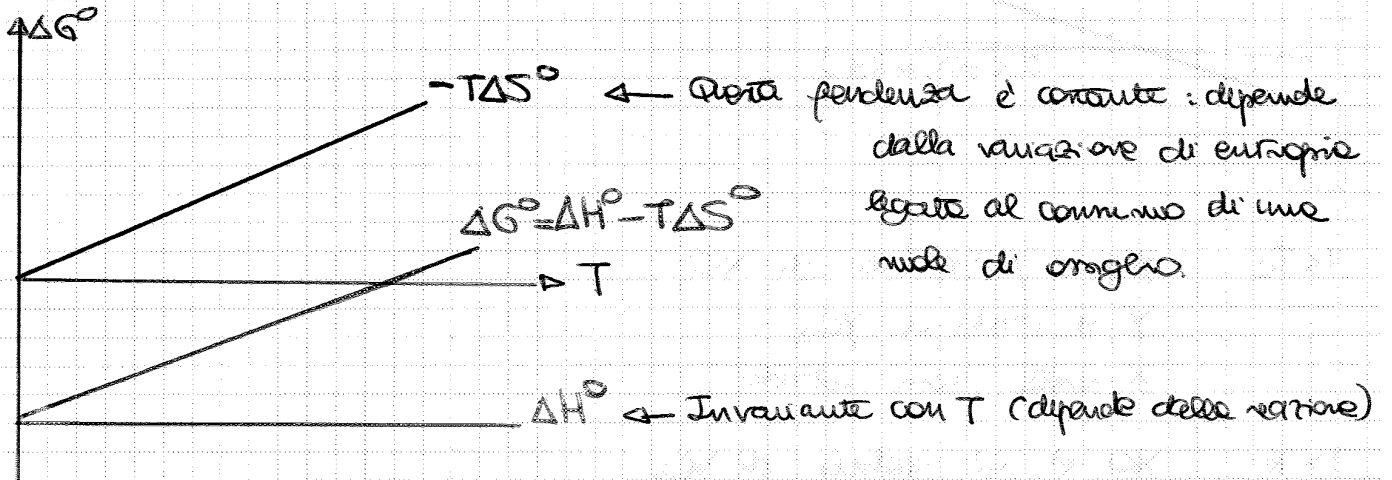 ΔG°
-TΔS° ← Questa pendenza è costante : dipende
dalla variazione di entropia
ΔG°=ΔH°-TΔS° legata al consumo di una
mole di ossigeno.
T
ΔH° ← Invariante con T (dipende dalla reazione)